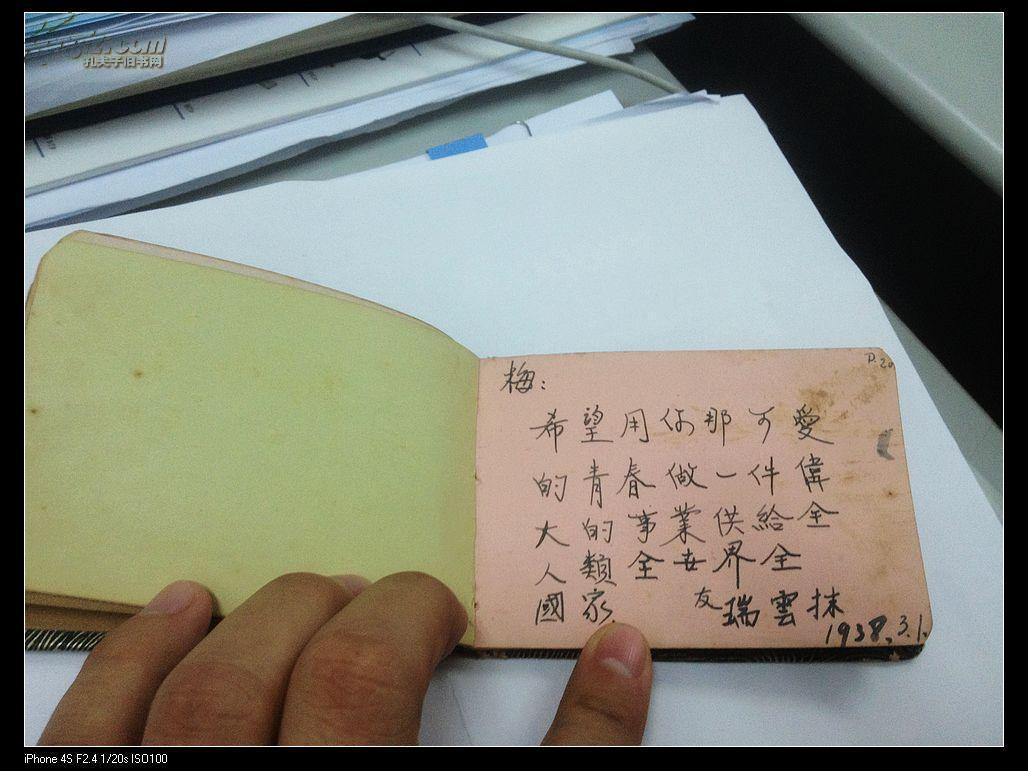 孔夫子旧书网
P.20
梅：
希望用你那可愛
的青春做一件偉
大的事業供給全
人類全世界全
國家
友瑞雲抹
1938.3.1.
iPhone 4S F2.4 1/20s ISO100